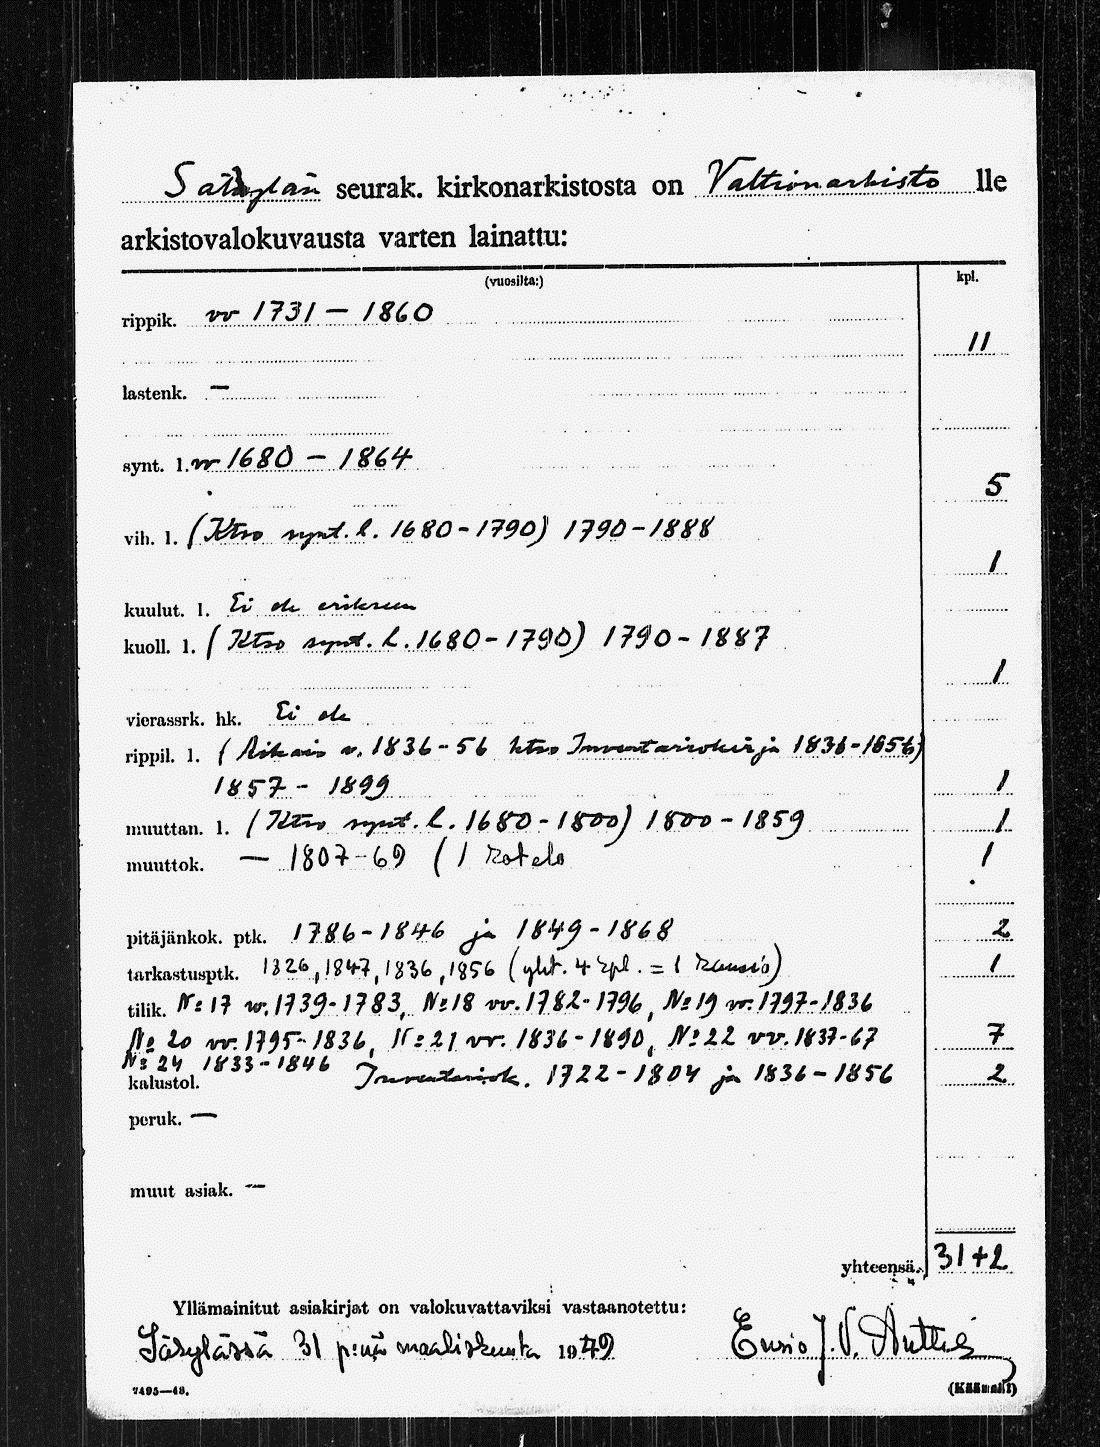 Säkylän seurak. kirkonarkistosta on Valtionarkisto lle
arkistovalokuvausta varten lainattu:
(vuosilta:) kpl.
rippik. vv 1731 – 1860
11
lastenk. –
synt. l. vv 1680 – 1864
5
vih. l. (Ktso synt. l. 1680-1790) 1790-1888
1
kuulut. l. Ei ole erikseen
kuoll. l. (Ktso synt. l. 1680-1790) 1790-1887
1
vierassrk. hk. Ei ole
rippil. l. (Aikais v. 1836-56 ktso Inventariokirja 1836-1856)
1857 - 1899 1
muuttan. l. (Ktso synt. l. 1680-1800) 1800-1859 1
muuttok. — 1807-69 (1 kotelo 1
pitäjänkok. ptk. 1786-1846 ja 1849-1868 2
tarkastusptk. 1826, 1847, 1836, 1856 (yht. 4 kpl. = 1 kansio) 1
tilik. No 17 vv. 1739-1783, No 18 vv. 1782-1796, No 19 vv. 1797-1836
No 20 vv. 1795-1836, No 21 vv. 1836-1890, No 22 vv. 1837-67 7
No 24 1833-1846
kalustol. Inventariok. 1722-1804 ja 1836-1856 2
peruk. —
muut asiak. —
yhteensä. 31+2
Yllämainitut asiakirjat on valokuvattaviksi vastaanotettu:
Säkylässä 31 p:nä maaliskuuta 1949 Ensio J. V. Anttila
7495—48. (Käännä!)